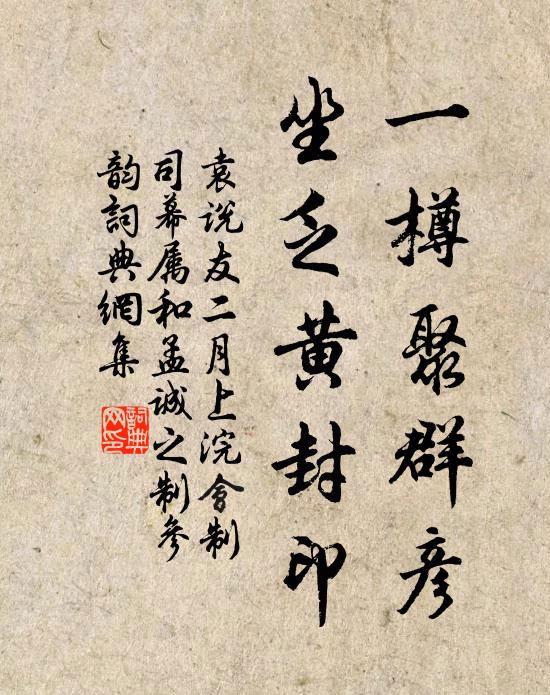 一樽聚群彦
坐乏黄封印
袁说友二月上浣會制
司幕属和孟诚之制參
韵詞典網集
詞典
网印